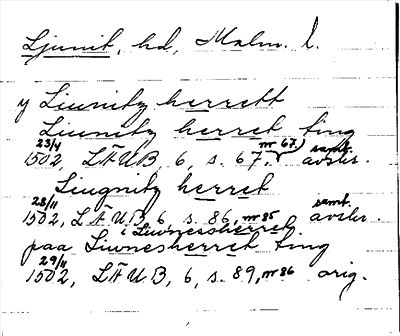 Ljunit, hd, Malm. l.
y Liunitz herrett
Liunitz herret ting
23/4 1502, LÄUB, 6, s. 67, nr 67. samt. avskr.
Liugnitz herret
28/11 1502, LÄUB, 6, s. 86, nr 85 samt. avskr.
i Liwnessherret
paa Liwnesherret ting
29/11 1502, LÄUB, 6, s. 89, nr 86 orig.